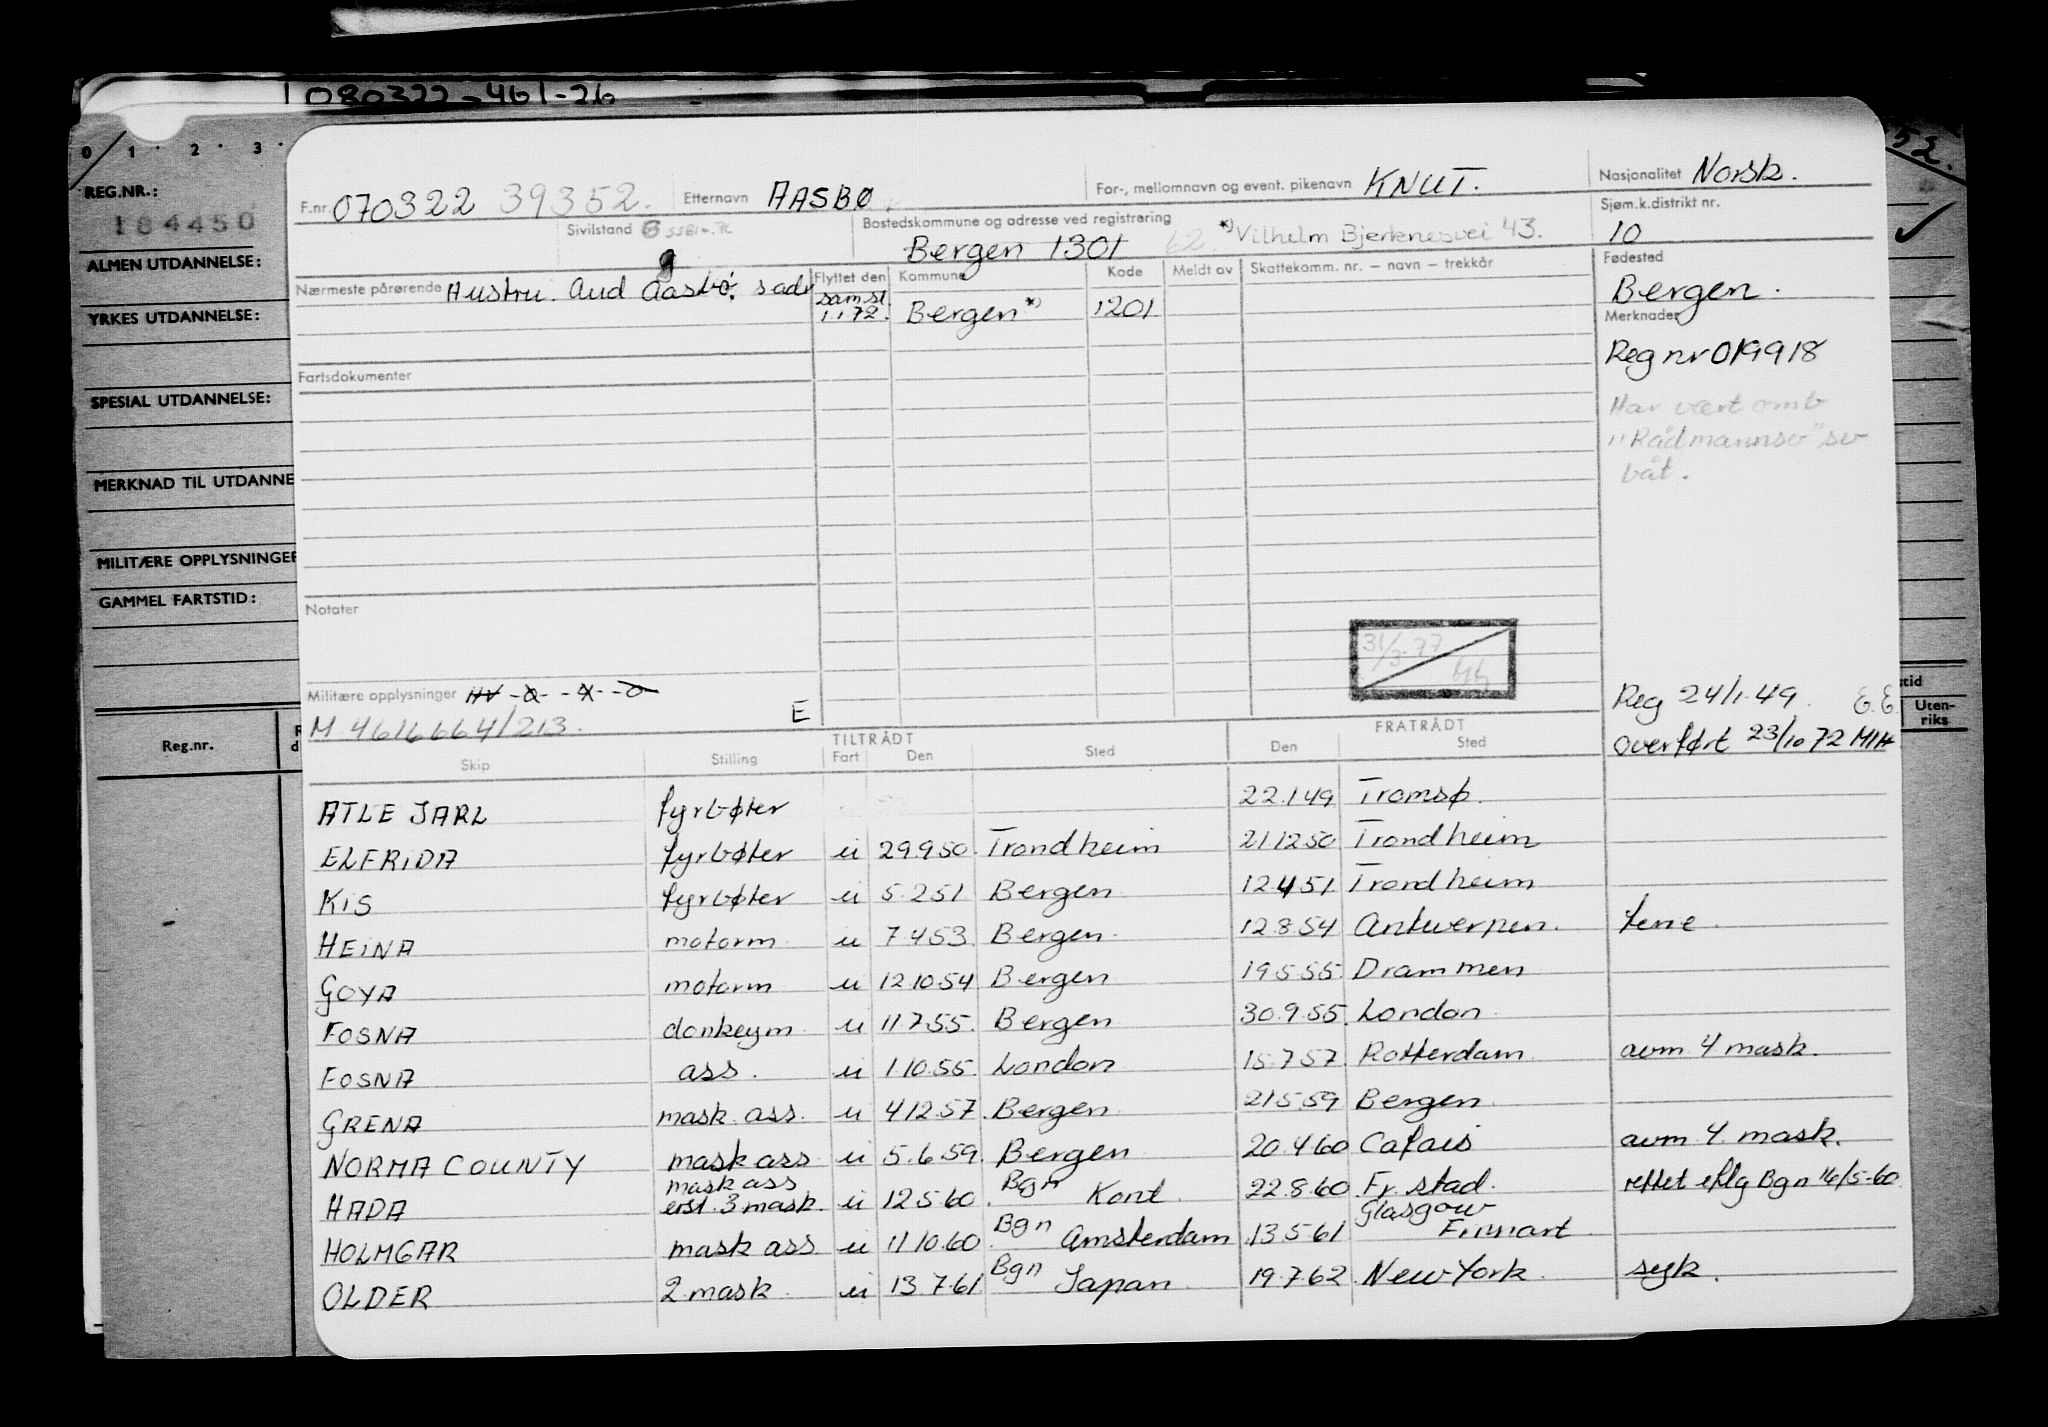 080322-461-26
0 1 . 2 . 3 .
52.
REG.NR.:
184450
ALMEN UTDANNELSE:
YRKES UTDANNELSE:
SPESIAL UTDANNELSE:
MERKNAD TIL UTDANNE
MILITÆRE OPPLYSNINGER
GAMMEL FARTSTID:
Reg.nr.
tid
Uten-
riks
F.nr 070322 39352. Etternavn AASBØ For-, mellomnavn og event. pikenavn KNUT. Nasjonalitet Norsk.
Sivilstand G Bostedskommune og adresse ved registrering Sjøm.k.distrikt nr.
Bergen 1301 62. *) Vilhelm Bjerknesvei 43. 10
Nærmeste pårørende Hustru. Aud Aasbø. s adr Flyttet den Kommune Kode Meldt av Skattekomm. nr. – navn – trekkår Fødested
Bergen.
sam.st
1.1.72. Bergen *) 1201
Merknader
Reg nr 019918
Fartsdokumenter
Har vært omb
"Rådmannsø" sv
båt.
Notater
31/3.77
Militære opplysninger HV - O - - X - - O
M 4616664/213. E
Reg 24/1.49. E.E.
overført 23/10 72 MIH
TILTRÅDT FRATRÅDT
Skip Stilling Fart Den Sted Den Sted
ATLE JARL fyrbøter 22.1.49 Tromsø.
ELFRIDA fyrbøter u 29.9.50. Trondheim 21.12.50 Trondheim
KIS fyrbøter u 5.2.51 Bergen 12.4.51 Trondheim
HEINA motorm u 7.4.53 Bergen 12.8.54 Antwerpen. ferie.
GOYA motorm u 12.10.54 Bergen 19.5.55. Drammen
FOSNA donkeym u 11.7.55. Bergen 30.9.55. London
FOSNA ass. u 1.10.55. London 15.7.57. Rotterdam avm 4 mask.
GRENA mask. ass. u 4.12.57. Bergen 21.5.59 Bergen
NORMA COUNTY mask ass u 5.6.59. Bergen 20.4.60 Calais avm 4. mask.
HADA mask ass
erst. 3 mask. u 12.5.60. Bgn Kont. 22.8.60 Fr. stad. rettet eftg Bgn 16/5-60
HOLMGAR mask ass u 11.10.60. Bgn Amsterdam 13.5.61 Glasgow
Finnart
OLDER 2 mask. u 13.7.61. Bgn Japan. 19.7.62. New York. syk.